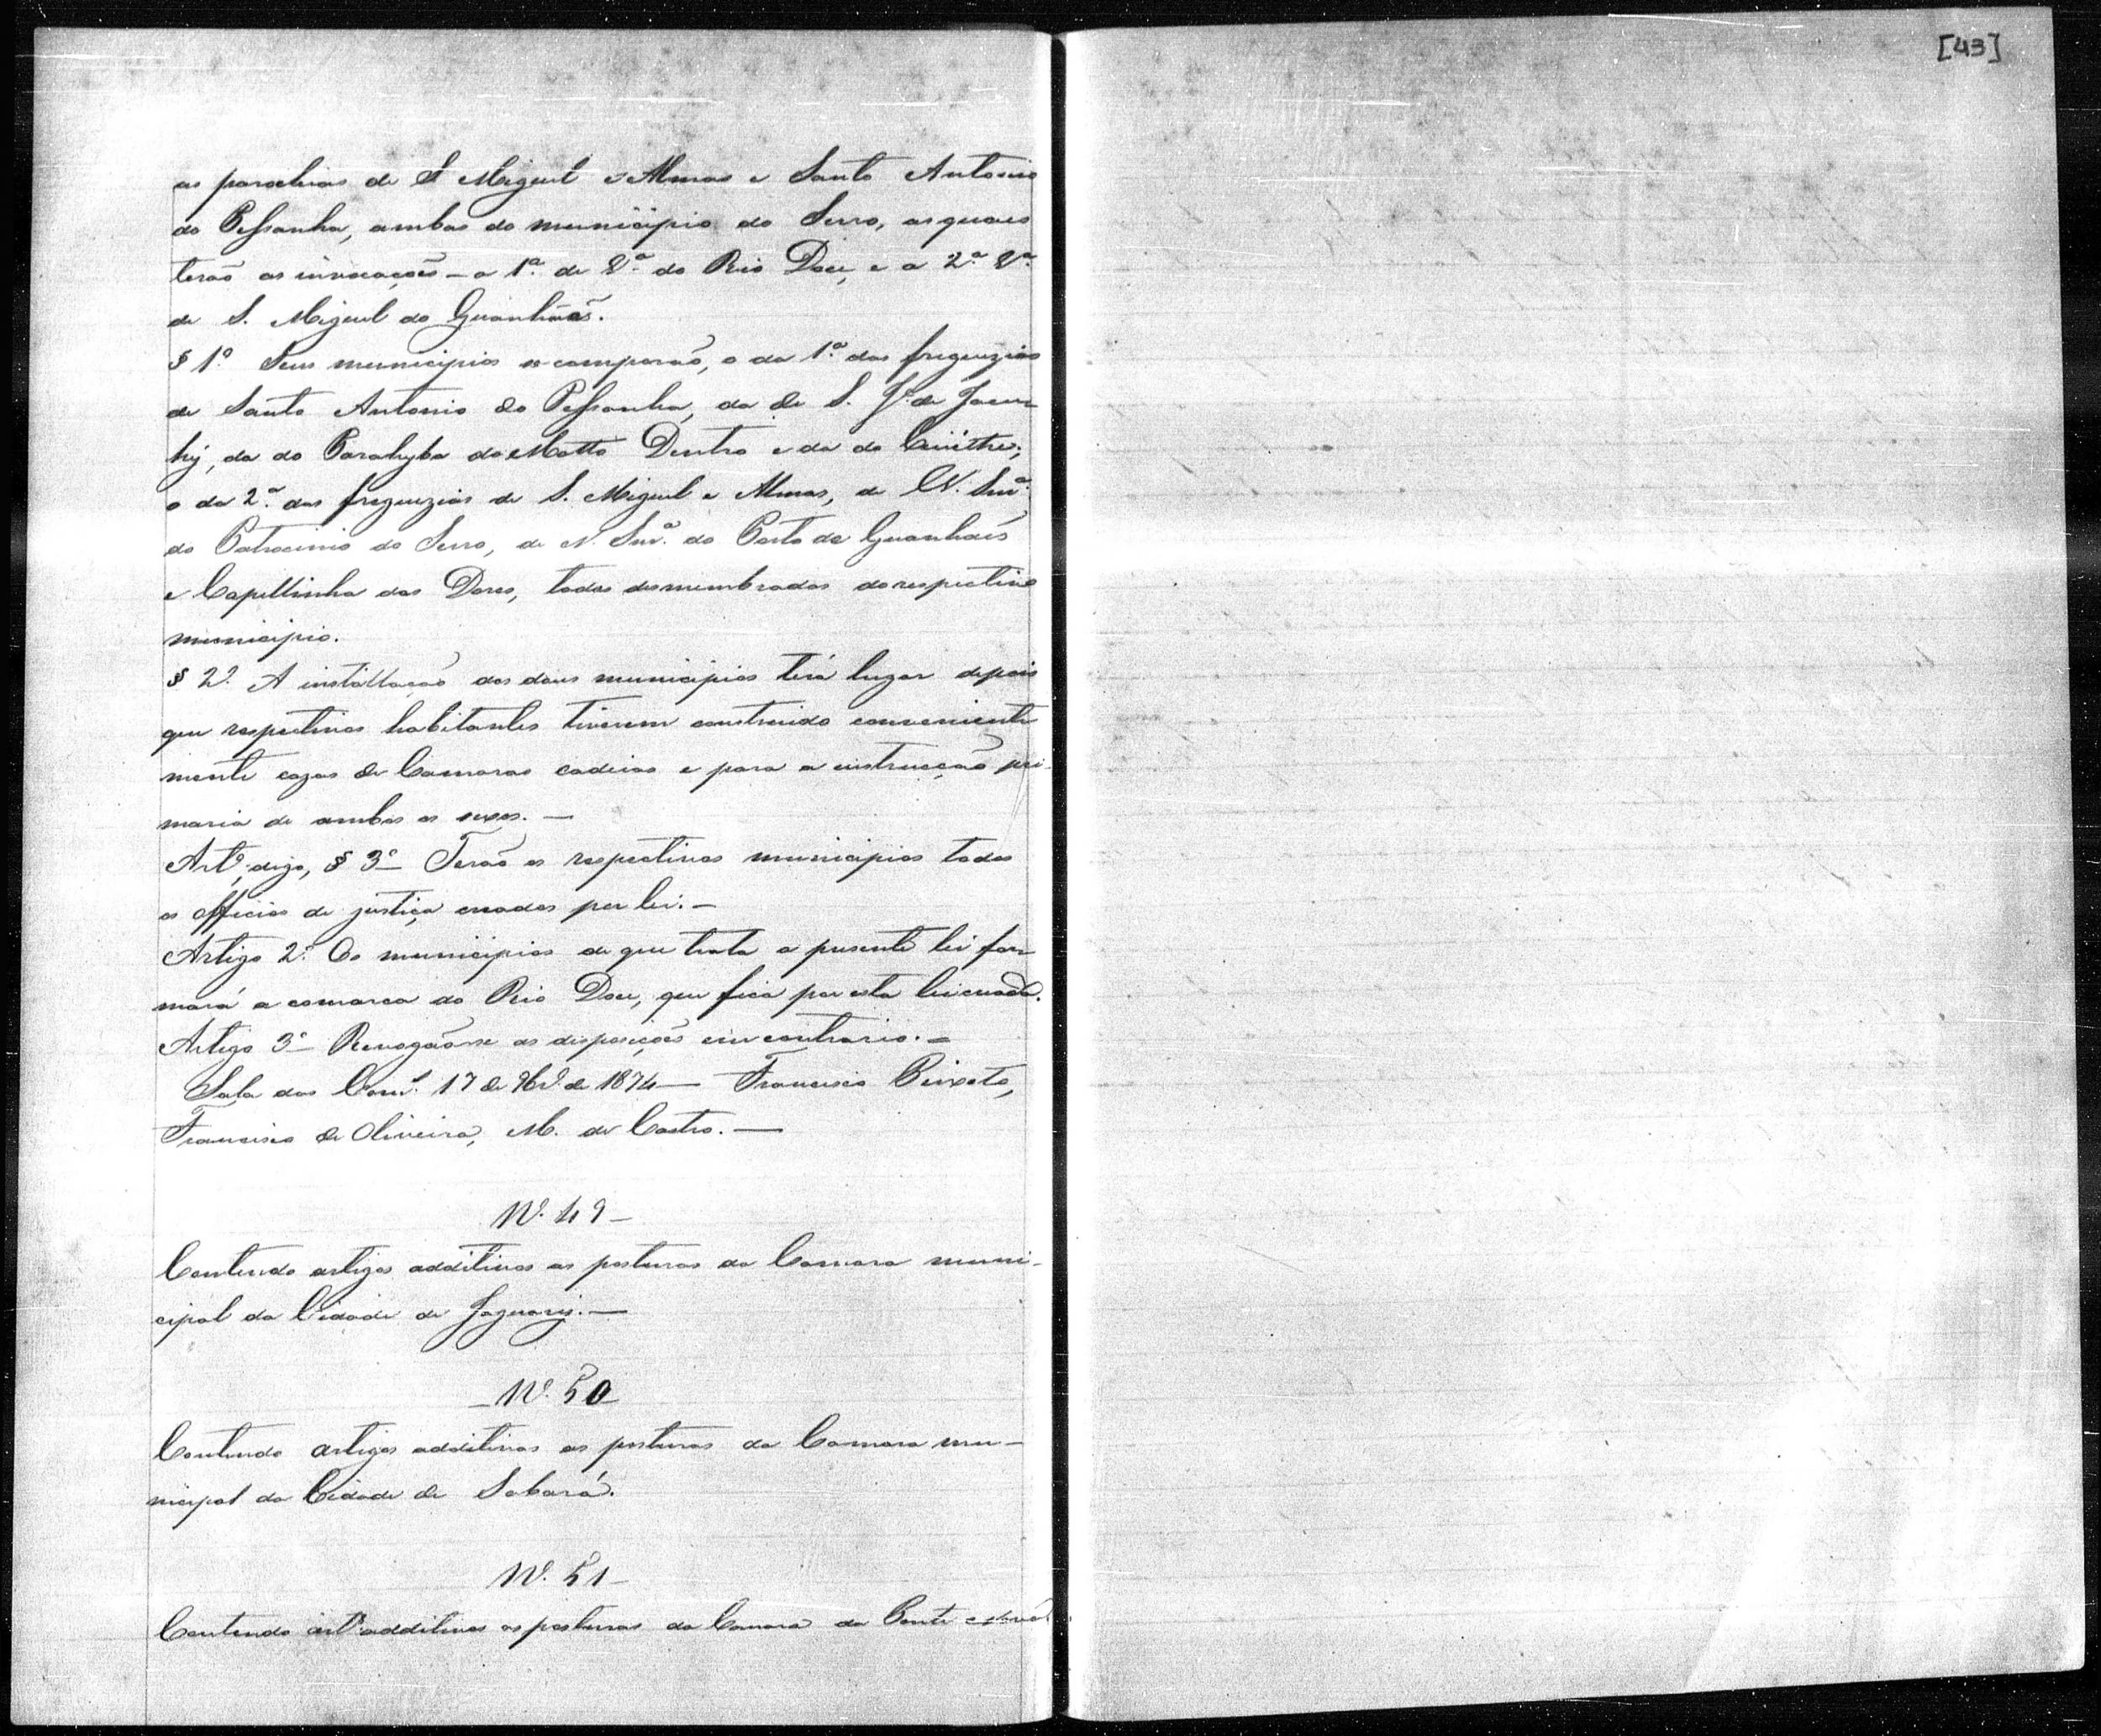 [43]
as parochias de S Miguel e Almas e Santo Antonio
do Pessanha, ambas do municipio do Serro, as quaes
terão as invocações – a 1ª de Vª do Rio Doce, e a 2ª Vª
de S. Miguel do Guanhães.
§ 1º Seus municipios se comporão, o da 1ª das freguezias
de Santo Antonio do Pessanha, da de S. Jº de Jacu-
hy, da do Parahyba do Matto Dentro e da do Cuiethe;
o da 2ª das freguezias de S. Miguel e Almas, de N. Snrª
do Patrocinio do Serro, de N. Snrª do Porto de Guanhães
e Capellinha das Dores, todas desmembradas do respectivo
municipio.
§ 2º A installação dos dous municipios terá lugar depois
que respectivos habitantes tiverem construido conveniente
mente cazas de Camaras cadeias e para a instrucção pri-
maria de ambos os sexos. —
Artº, digo, § 3º – Terão os respectivos municipios todos
os officios de justiça creados por lei. –
Artigo 2º Os municipios de que trata a presente lei for-
mará a comarca do Rio Doce, que fica por esta lei creada.
Artigo 3º – Revogão-se as disposições em contrario. –
Sala das Comˢ. 17 de 9brº de 1874 — Francisco Peixoto,
Francisco de Oliveira, M. de Castro. —
Nº. 49 –
Contendo artigos additivos as posturas da Camara muni-
cipal da Cidade de Jaguary. —
– Nº. 50 –
Contendo artigos additivos as posturas da Camara mu-
nicipal da Cidade de Sabará.
Nº. 51 –
Contendo artº additivos as posturas da Camara da Ponte